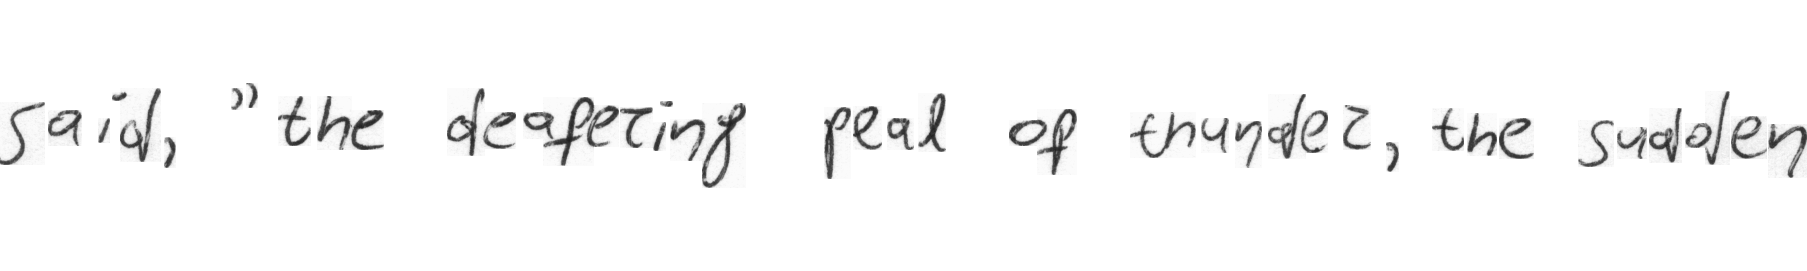 said, "the deafering peal of thunder, the sudden